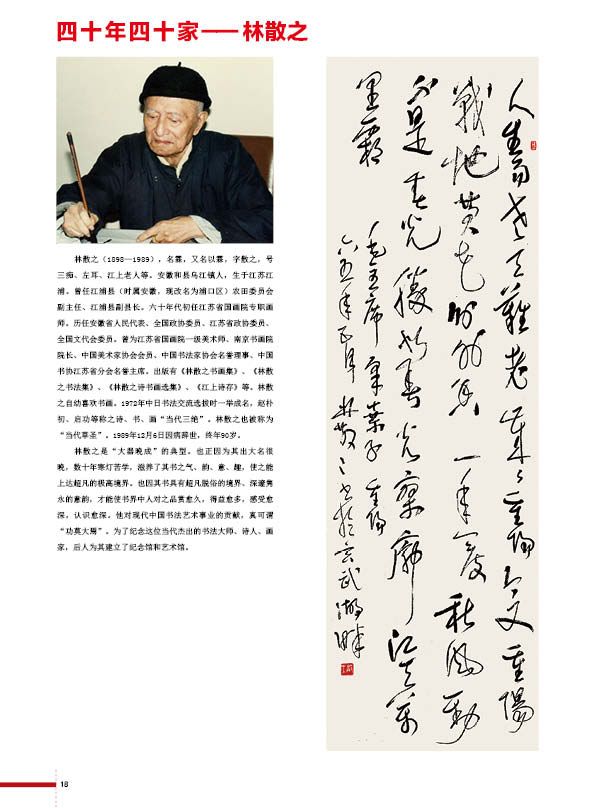 四十年四十家——林散之
林散之（1898—1989），名霖，又名以霖，字散之，号
三痴、左耳、江上老人等。安徽和县乌江镇人，生于江苏江
浦。曾任江浦县（时属安徽，现改名为浦口区）农田委员会
副主任、江浦县副县长。六十年代初任江苏省国画院专职画
师。历任安徽省人民代表、全国政协委员、江苏省政协委员、
全国文代会委员。曾为江苏省国画院一级美术师、南京书画院
院长、中国美术家协会会员、中国书法家协会名誉理事、中国
书协江苏省分会名誉主席。出版有《林散之书画集》、《林散
之书法集》、《林散之诗书画选集》、《江上诗存》等。林散
之自幼喜欢书画。1972年中日书法交流选拔时一举成名，赵朴
初、启功等称之诗、书、画“当代三绝”。林散之也被称为
“当代草圣”。1989年12月6日因病辞世，终年90岁。
林散之是“大器晚成”的典型。也正因为其出大名很
晚，数十年寒灯苦学，滋养了其书之气、韵、意、趣，使之能
上达超凡的极高境界。也因其书具有超凡脱俗的境界、深邃隽
永的意韵，才能使书界中人对之品赏愈久，得益愈多，感受愈
深，认识愈深。他对现代中国书法艺术事业的贡献，真可谓
“功莫大焉”。为了纪念这位当代杰出的书法大师、诗人、画
家，后人为其建立了纪念馆和艺术馆。
人生易老天难老岁々重阳今又重阳
战地黄花分外香一年一度秋风动
不是春光胜似春光寥廓江天万
里霜
毛主席采桑子重阳
六五年五月林散之书于玄武湖畔
18